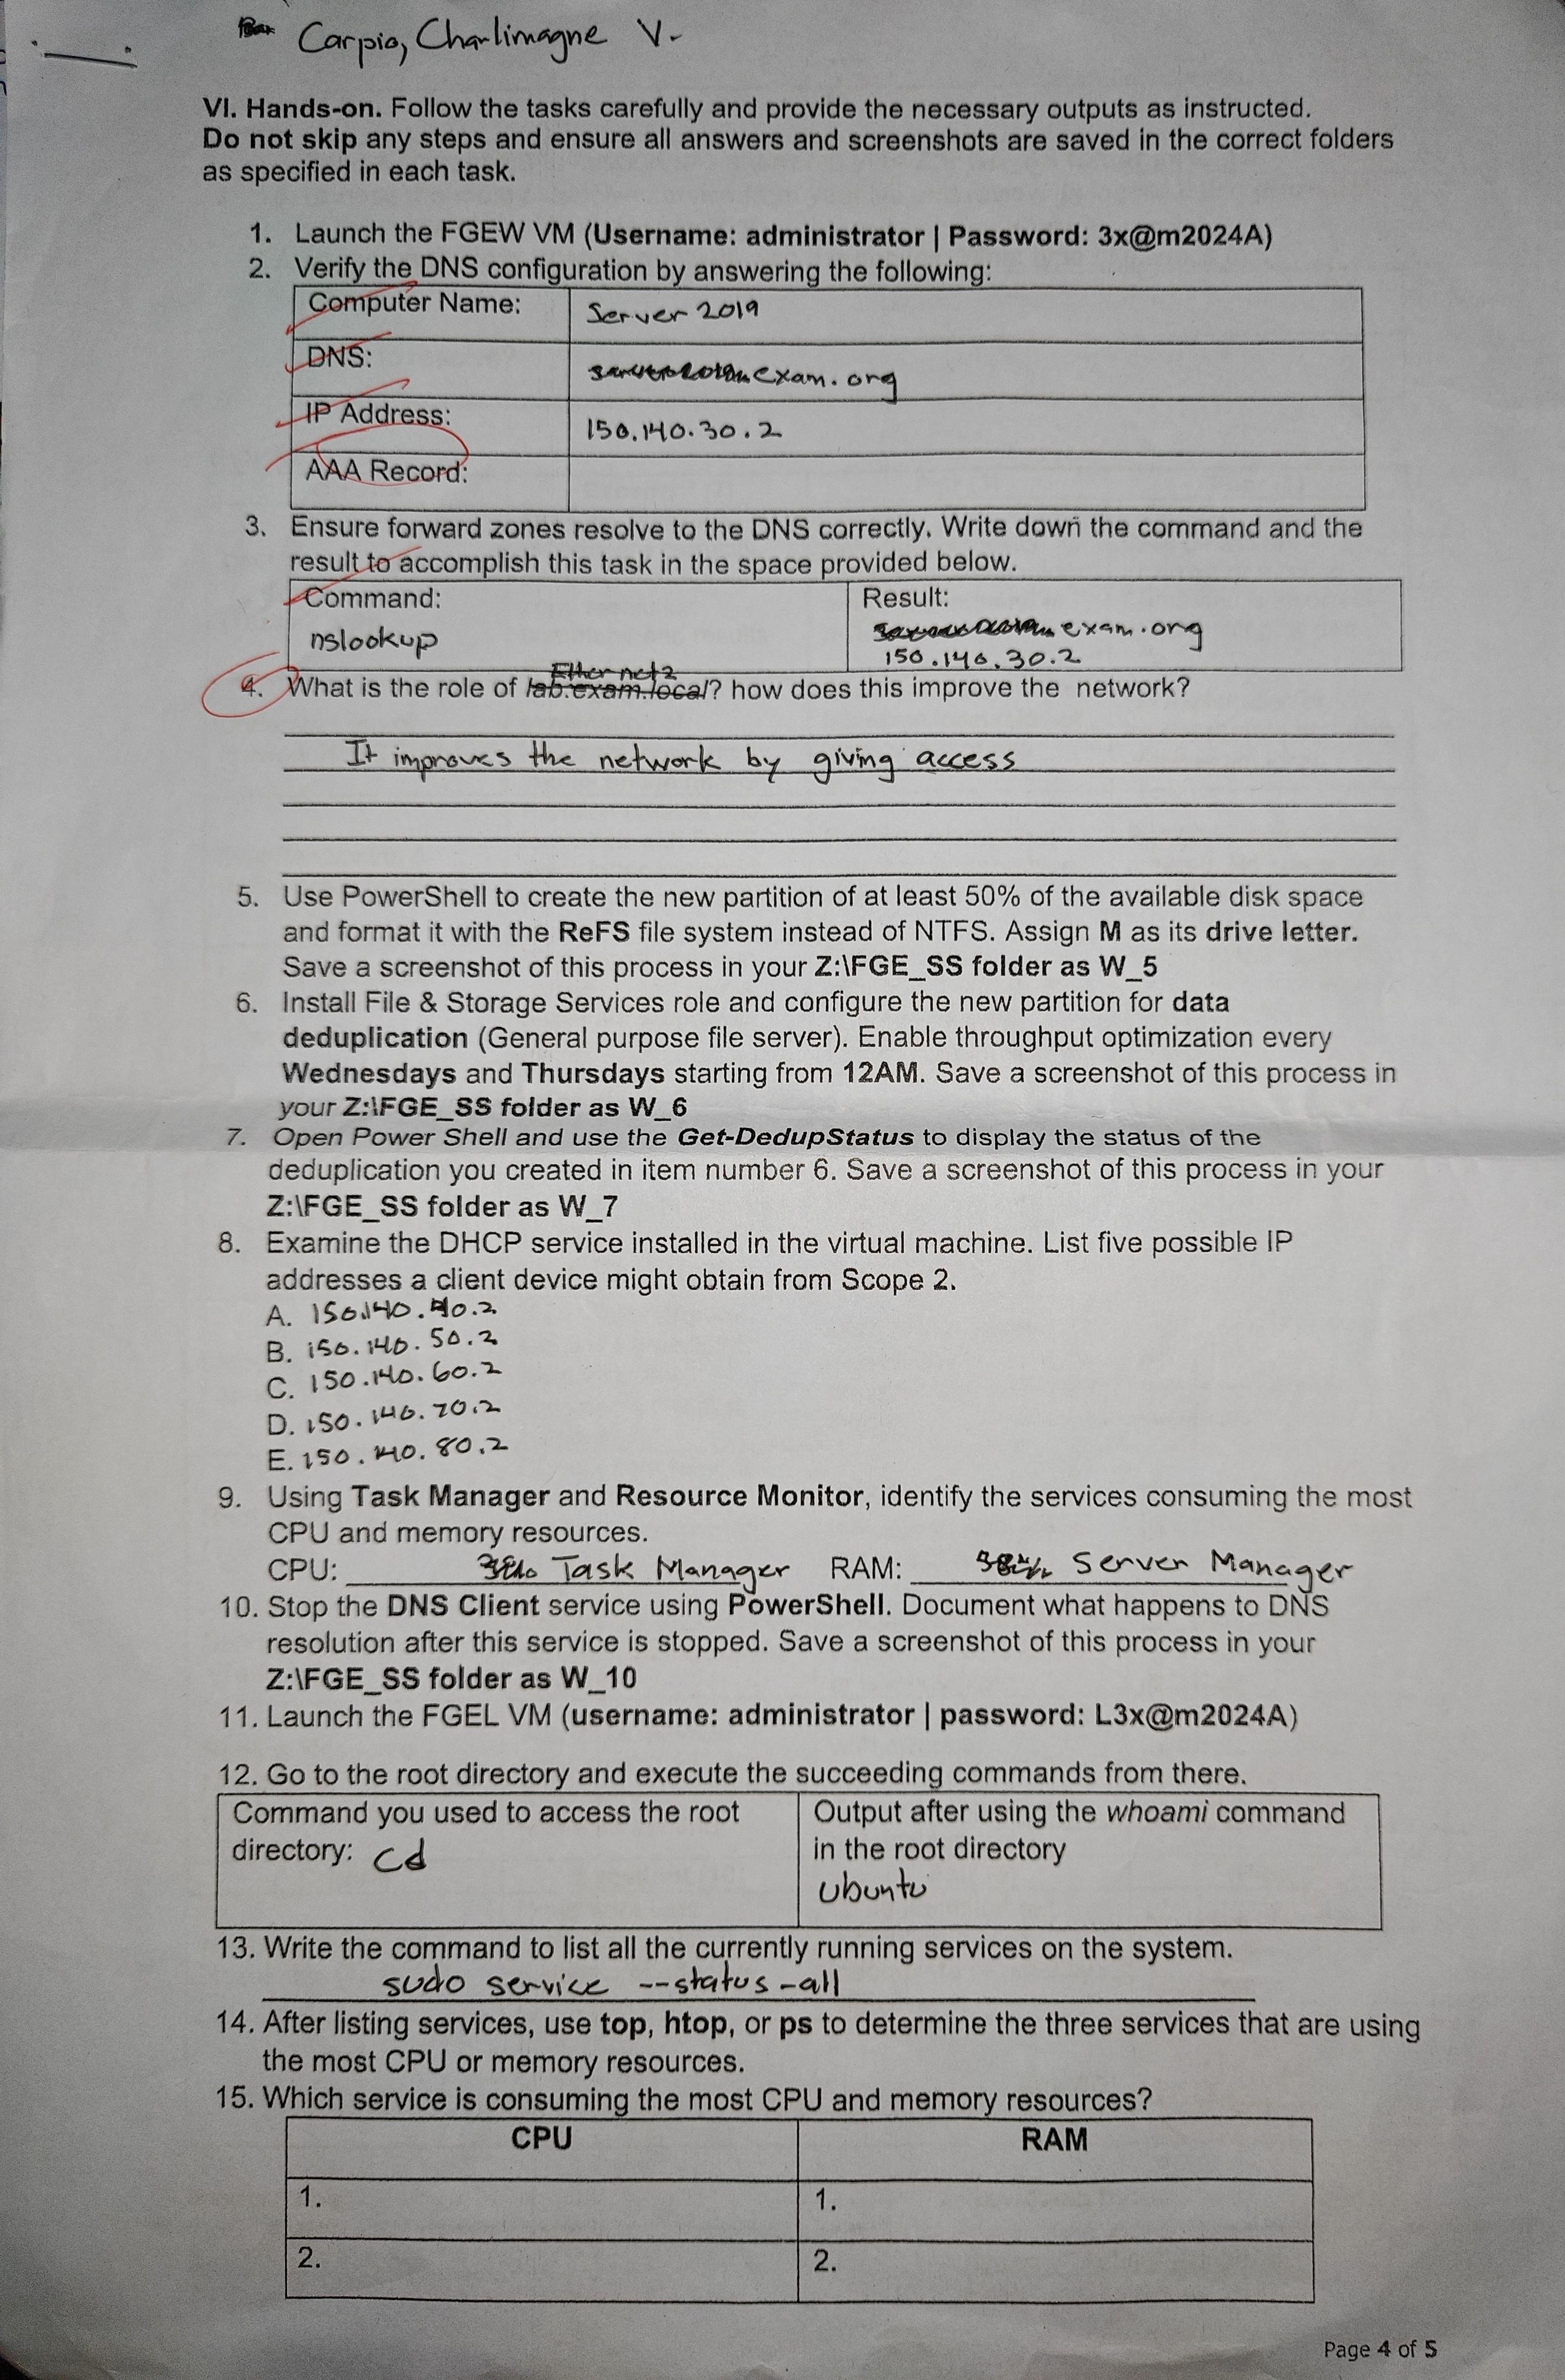 Carpio, Charlimagne V.
VI. Hands-on. Follow the tasks carefully and provide the necessary outputs as instructed.
Do not skip any steps and ensure all answers and screenshots are saved in the correct folders
as specified in each task.
1. Launch the FGEW VM (Username: administrator | Password: 3x@m2024A)
2. Verify the DNS configuration by answering the following:
Computer Name: Server 2019
DNS: exam.org
IP Address: 150.140.30.2
AAA Record:
3. Ensure forward zones resolve to the DNS correctly. Write down the command and the
result to accomplish this task in the space provided below.
Command: Result:
nslookup exam.org
150.140.30.2
Ethernet2
4. What is the role of lab.exam.local? how does this improve the network?
It improves the network by giving access
5. Use PowerShell to create the new partition of at least 50% of the available disk space
and format it with the ReFS file system instead of NTFS. Assign M as its drive letter.
Save a screenshot of this process in your Z:\FGE_SS folder as W_5
6. Install File & Storage Services role and configure the new partition for data
deduplication (General purpose file server). Enable throughput optimization every
Wednesdays and Thursdays starting from 12AM. Save a screenshot of this process in
your Z:\FGE_SS folder as W_6
7. Open Power Shell and use the Get-DedupStatus to display the status of the
deduplication you created in item number 6. Save a screenshot of this process in your
Z:\FGE_SS folder as W_7
8. Examine the DHCP service installed in the virtual machine. List five possible IP
addresses a client device might obtain from Scope 2.
A. 150.140.40.2
B. 150.140.50.2
C. 150.140.60.2
D. 150.140.70.2
E. 150.140.80.2
9. Using Task Manager and Resource Monitor, identify the services consuming the most
CPU and memory resources.
CPU: Task Manager RAM: Server Manager
10. Stop the DNS Client service using PowerShell. Document what happens to DNS
resolution after this service is stopped. Save a screenshot of this process in your
Z:\FGE_SS folder as W_10
11. Launch the FGEL VM (username: administrator | password: L3x@m2024A)
12. Go to the root directory and execute the succeeding commands from there.
Command you used to access the root Output after using the whoami command
directory: cd in the root directory
ubuntu
13. Write the command to list all the currently running services on the system.
sudo service --status-all
14. After listing services, use top, htop, or ps to determine the three services that are using
the most CPU or memory resources.
15. Which service is consuming the most CPU and memory resources?
CPU RAM
1. 1.
2. 2.
Page 4 of 5